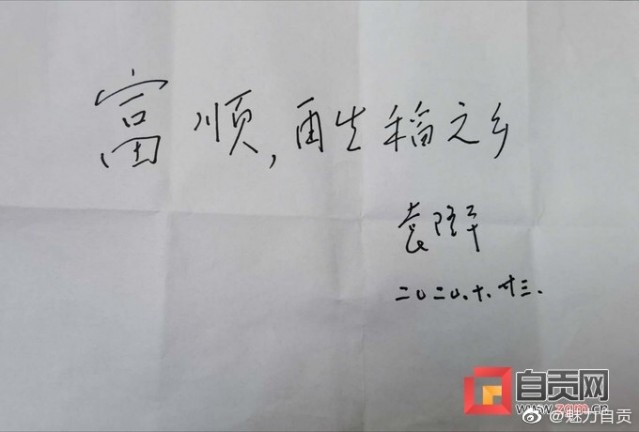 富顺,再生稻之乡
袁隆平
二〇二〇.十.廿三.
自贡网
www.zgm.cn
@魅力自贡